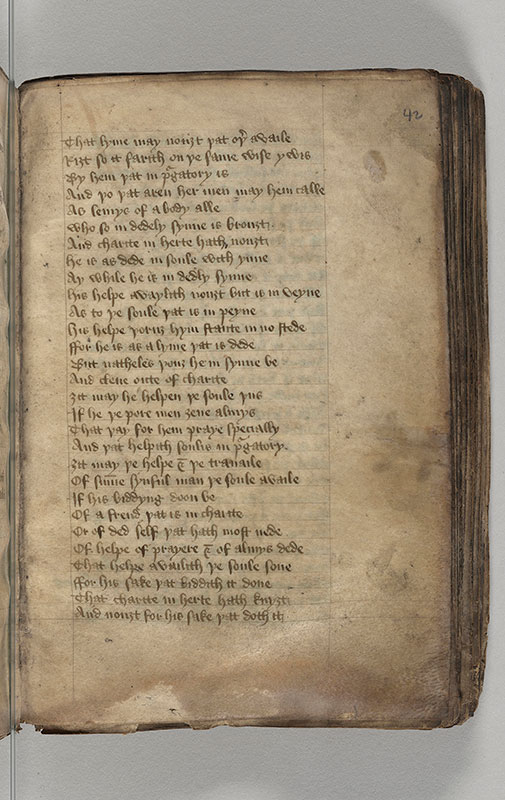 42
That lyme may nouzt þat oþr availe
Rizt so it farith on þe same wise ywis
By hem þat in prgatory is
And þo þat aren her men may hem calle
As lemys of a body alle
who so in dedely synne is brouzt
And charite in herte hath nouzt
he is as dede in soule with ynne
Ay while he is in dedly synne
his helpe availith nouzt but is in veyne
As to þe soule þat is in peyne
His helpe þoruz hym stante in no stede
ffor he is as a lyme þat is dede
But natheles þouz he in synne be
And clene oute of charite
zit may he helpen þe soule þus
If he þe pore men zeue almys
That þay for hem praye specially
And þat helpith soulis in prgatory.
zit may þe helpe & þe travaile
Of summe synful man þe soule availe
If his biddyng doon be
Of a frend þat is in charite
Or of ded self þat hath most nede
Of helpe of prayere & of almys dede
That helpe availith þe soule sone
ffor his sake þat biddith it done
That charite in herte hath knyzt
And nouzt for his sake þat doth it